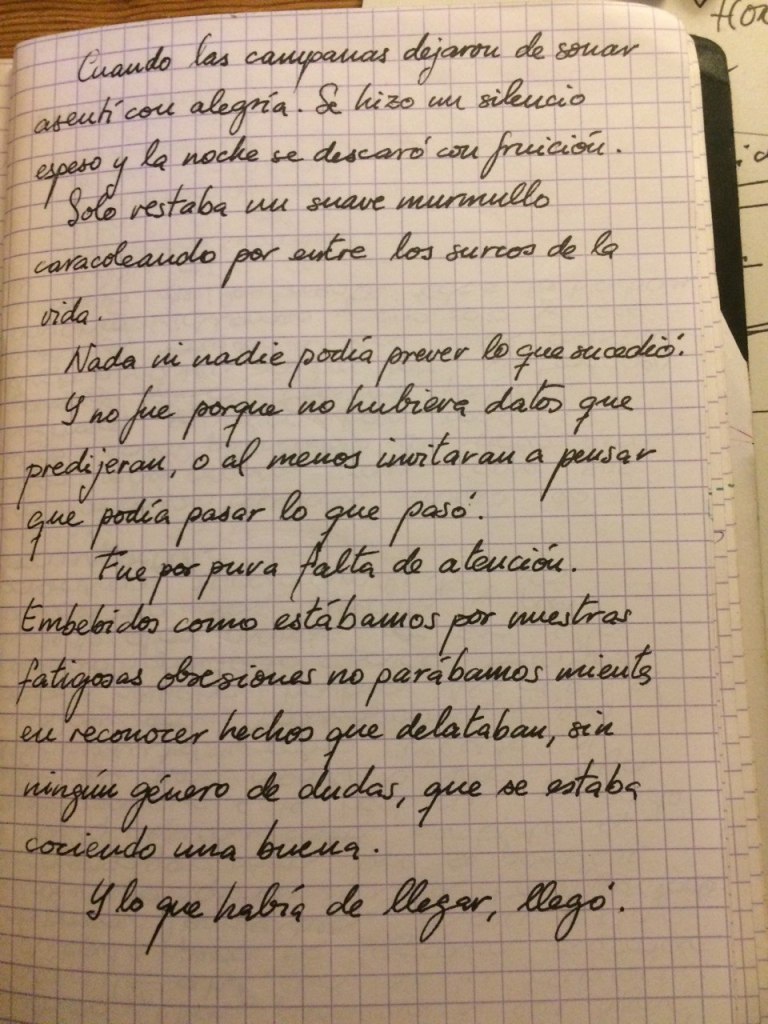 Cuando las campanas dejaron de sonar
asentí con alegría. Se hizo un silencio
espeso y la noche se descaró con fruición.
Solo restaba un suave murmullo
caracoleando por entre los surcos de la
vida.
Nada ni nadie podía prever lo que sucedió.
Y no fue porque no hubiera datos que
predijeran, o al menos invitaran a pensar
que podía pasar lo que pasó.
Fue por pura falta de atención.
Embebidos como estábamos por nuestras
fatigosas obsesiones no parábamos mientes
en reconocer hechos que delataban, sin
ningún género de dudas, que se estaba
cociendo una buena.
Y lo que había de llegar, llegó.